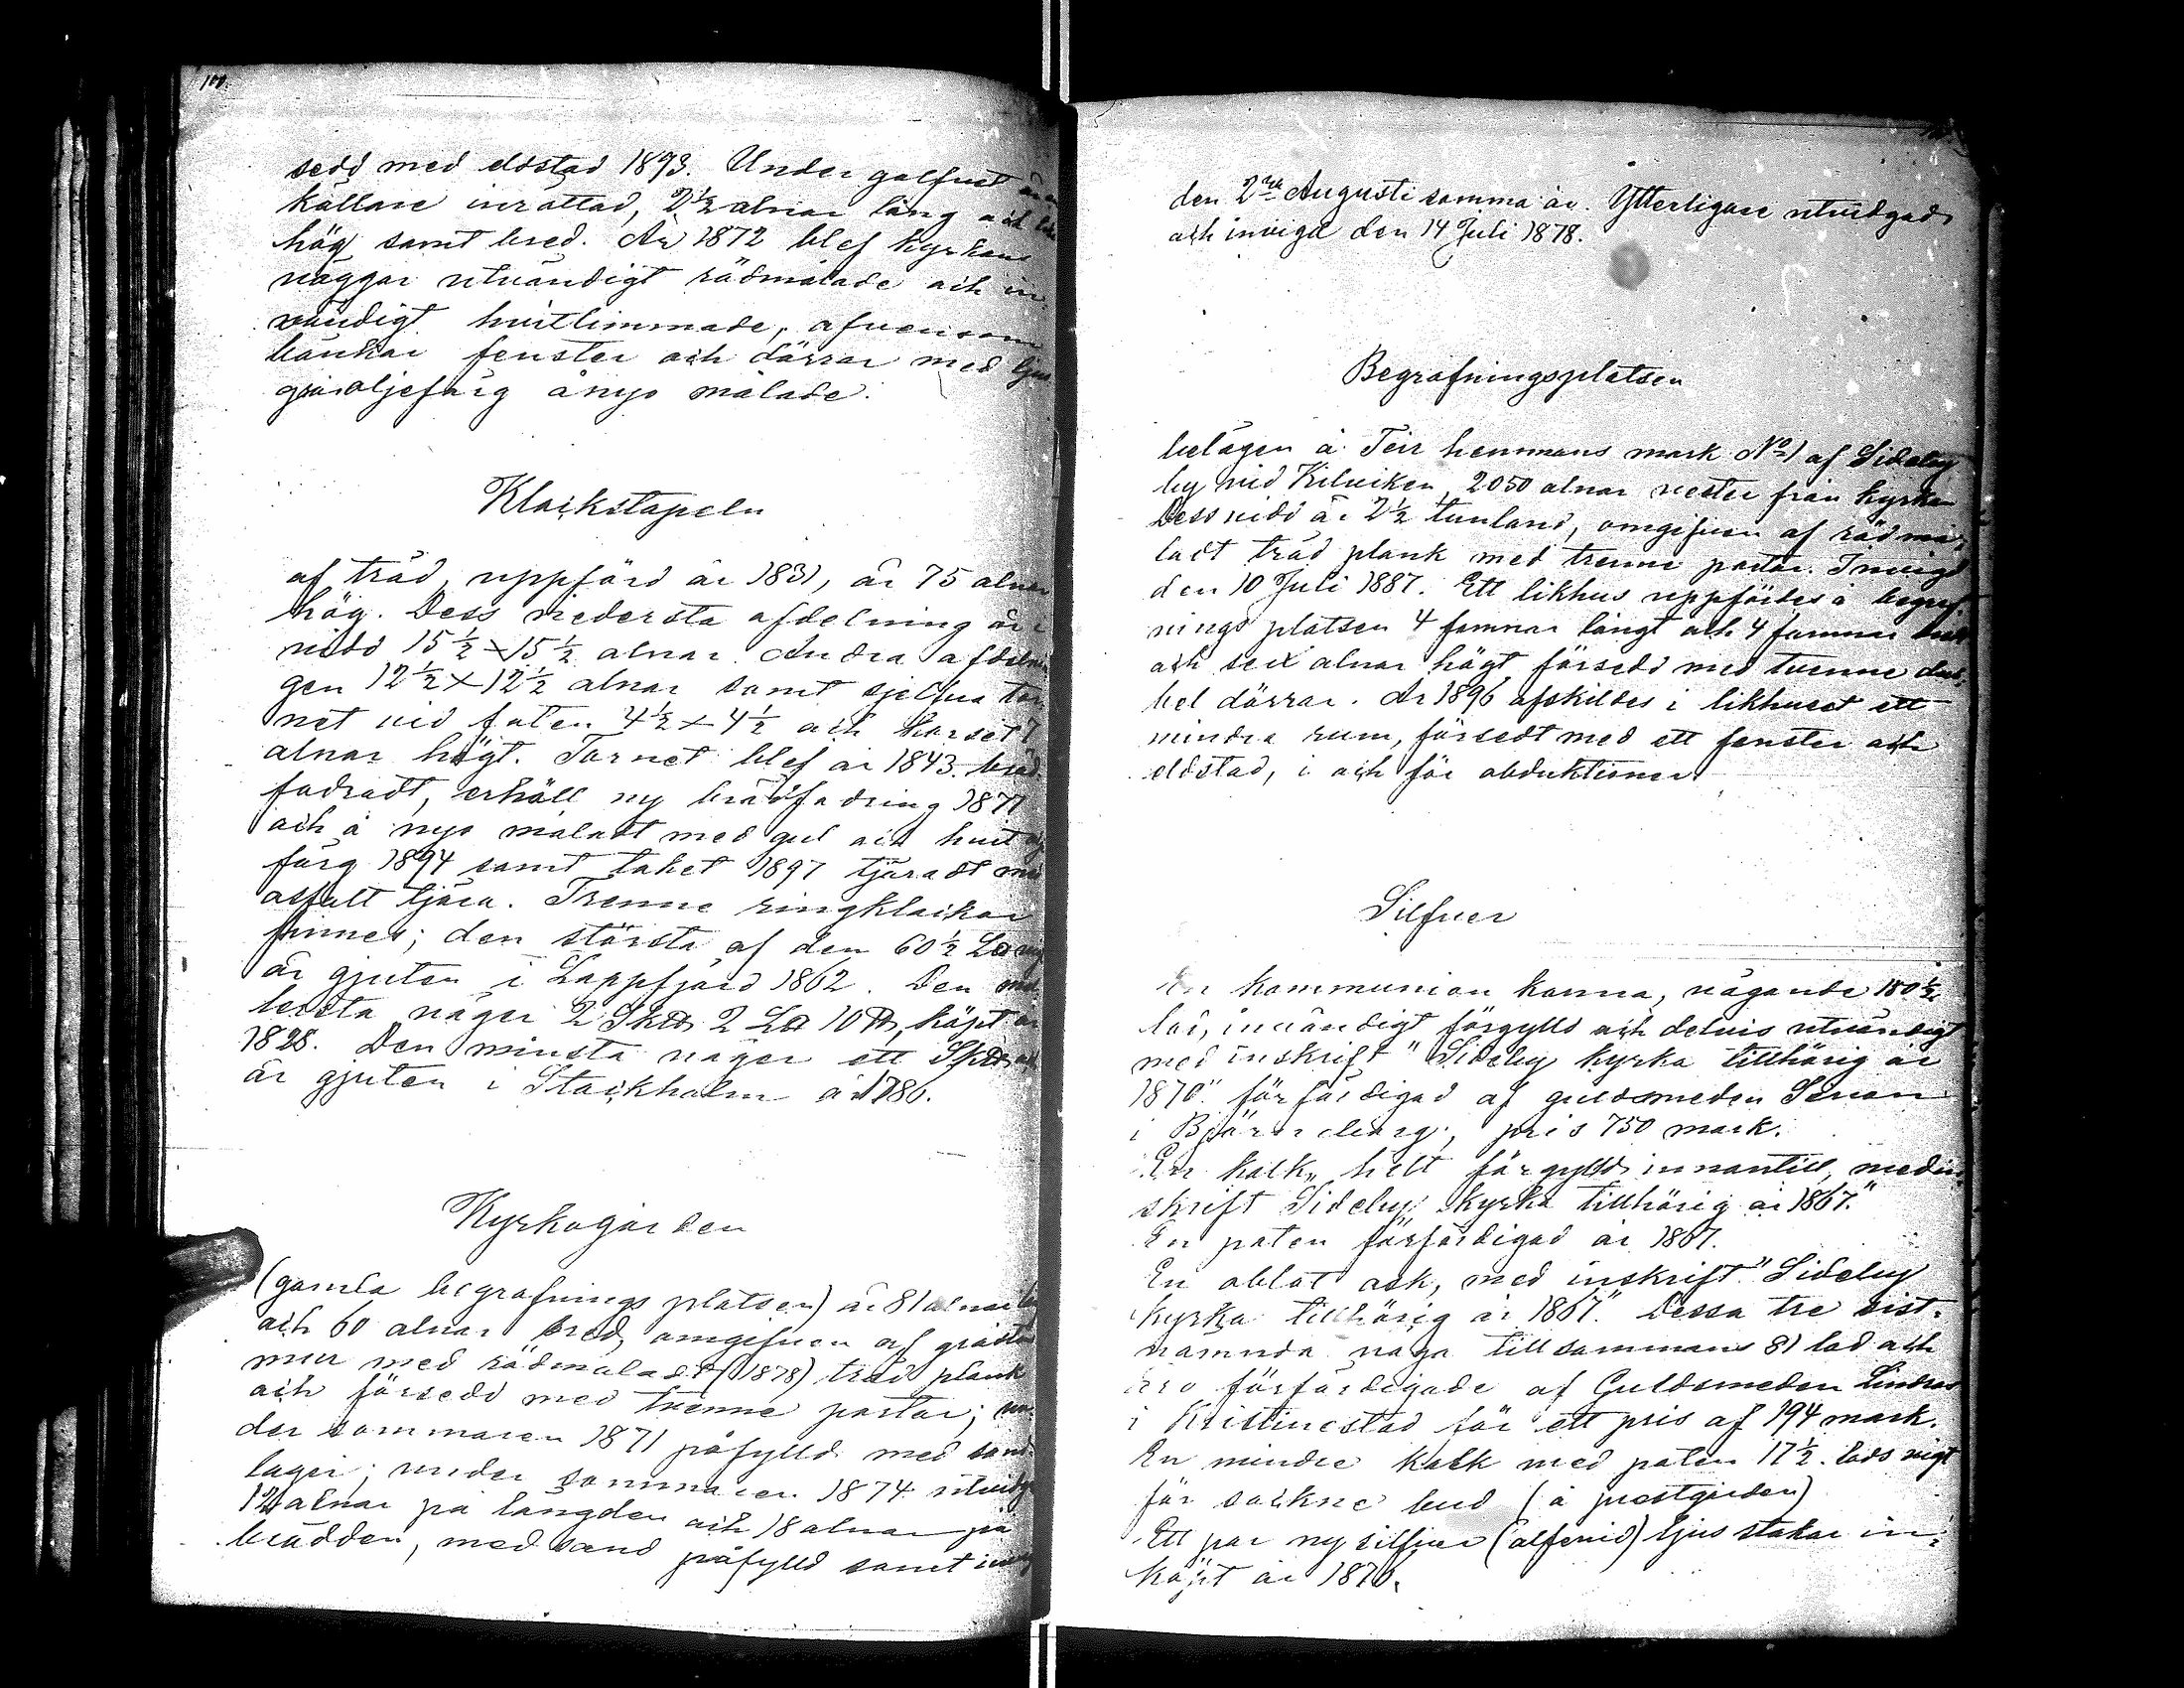 100.
sedd med eldstad 1893. Under golfvet är en
källare inrättad, 2½ alnar lång och lika
hög samt bred. År 1872 blef kyrkans
väggar utvändigt rödmålade och in-
vändigt hvitlimmade, äfvensom
bänkar fenster och dörrar med ljus
grå oljefärg ånyo målade.
Klockstapeln
af träd, uppförd år 1831, är 75 alnar
hög. Dess nedersta afdelning är i
vidd 15½ × 15½ alnar. Andra afdelnin
gen 12½ × 12½ alnar samt sjelfva tor
net vid foten 4½ × 4½ och korset 7
alnar högt. Tornet blef år 1843 bräd
fodradt, erhöll ny brädfodring 1871
och å nyo måladt med gul och hvit olje
färg 1894 samt taket 1897 tjäradt med
asfalt tjära. Trenne ringklockor
finnes; den största af dem 60½ L℔ väg
är gjuten i Lappfjärd 1862. Den mel
lersta väger 2 Sk℔ 2 L℔ 10 ℔, köpt år
1828. Den minsta väger ett Sk℔ och
är gjuten i Stockholm år 1786.
Kyrkogården
(gamla begrafnings platsen) är 81 alnar lång
och 60 alnar bred, omgifven af gråstens
mur med rödmåladt (1878) träd plank
och försedd med trenne portar; un-
der sommaren 1871 påfylld med sand-
lager; under sommaren 1874 utvidg
12 alnar på längden och 18 alnar på
brädden, med sand påfylld samt invig
den 2dra Augusti samma år. Ytterligare utvidgad
och invigd den 14 Juli 1878.
Begrafningsplatsen
belägen å Teir hemmans mark No 1 af Sideby
by vid Kilviken 2050 alnar vester från kyrkan
Dess vidd är 2½ tunland, omgifven af rödmå-
ladt träd plank med trenne portar. Invigd
den 10 Juli 1887. Ett likhus uppfördes å begraf-
nings platsen 4 famnar långt och 4 famnar bredt
och sex alnar högt försedd med tvenne dub-
bel dörrar. År 1896 afskildes i likhuset ett
mindre rum, försedt med ett fenster och
eldstad, i och för obduktioner.
Silfver
En kommunion kanna, vägande 180½
lod, invändigt förgylld och delvis utvändigt
med inskrift "Sideby kyrka tillhörig år
1870." förfärdigad af guldsmeden
i Björneborg, pris 750 mark.
En kalk, helt förgylld innantill, med in-
skrift Sideby kyrka tillhörig år 1867."
En paten förfärdigad år 1867.
En oblat ask, med inskrift "Sideby
kyrka tillhörig år 1867." Dessa tre sist-
nämnda väga tillsammans 81 lod och
äro förfärdigade af Guldsmeden
i Kristinestad för ett pris af 194 mark.
En mindre kalk med paten 17½ lods vigt
för sockne bud (å prestgården)
Ett par ny silfver (alfenid) ljus stakar in-
köpt år 1876.